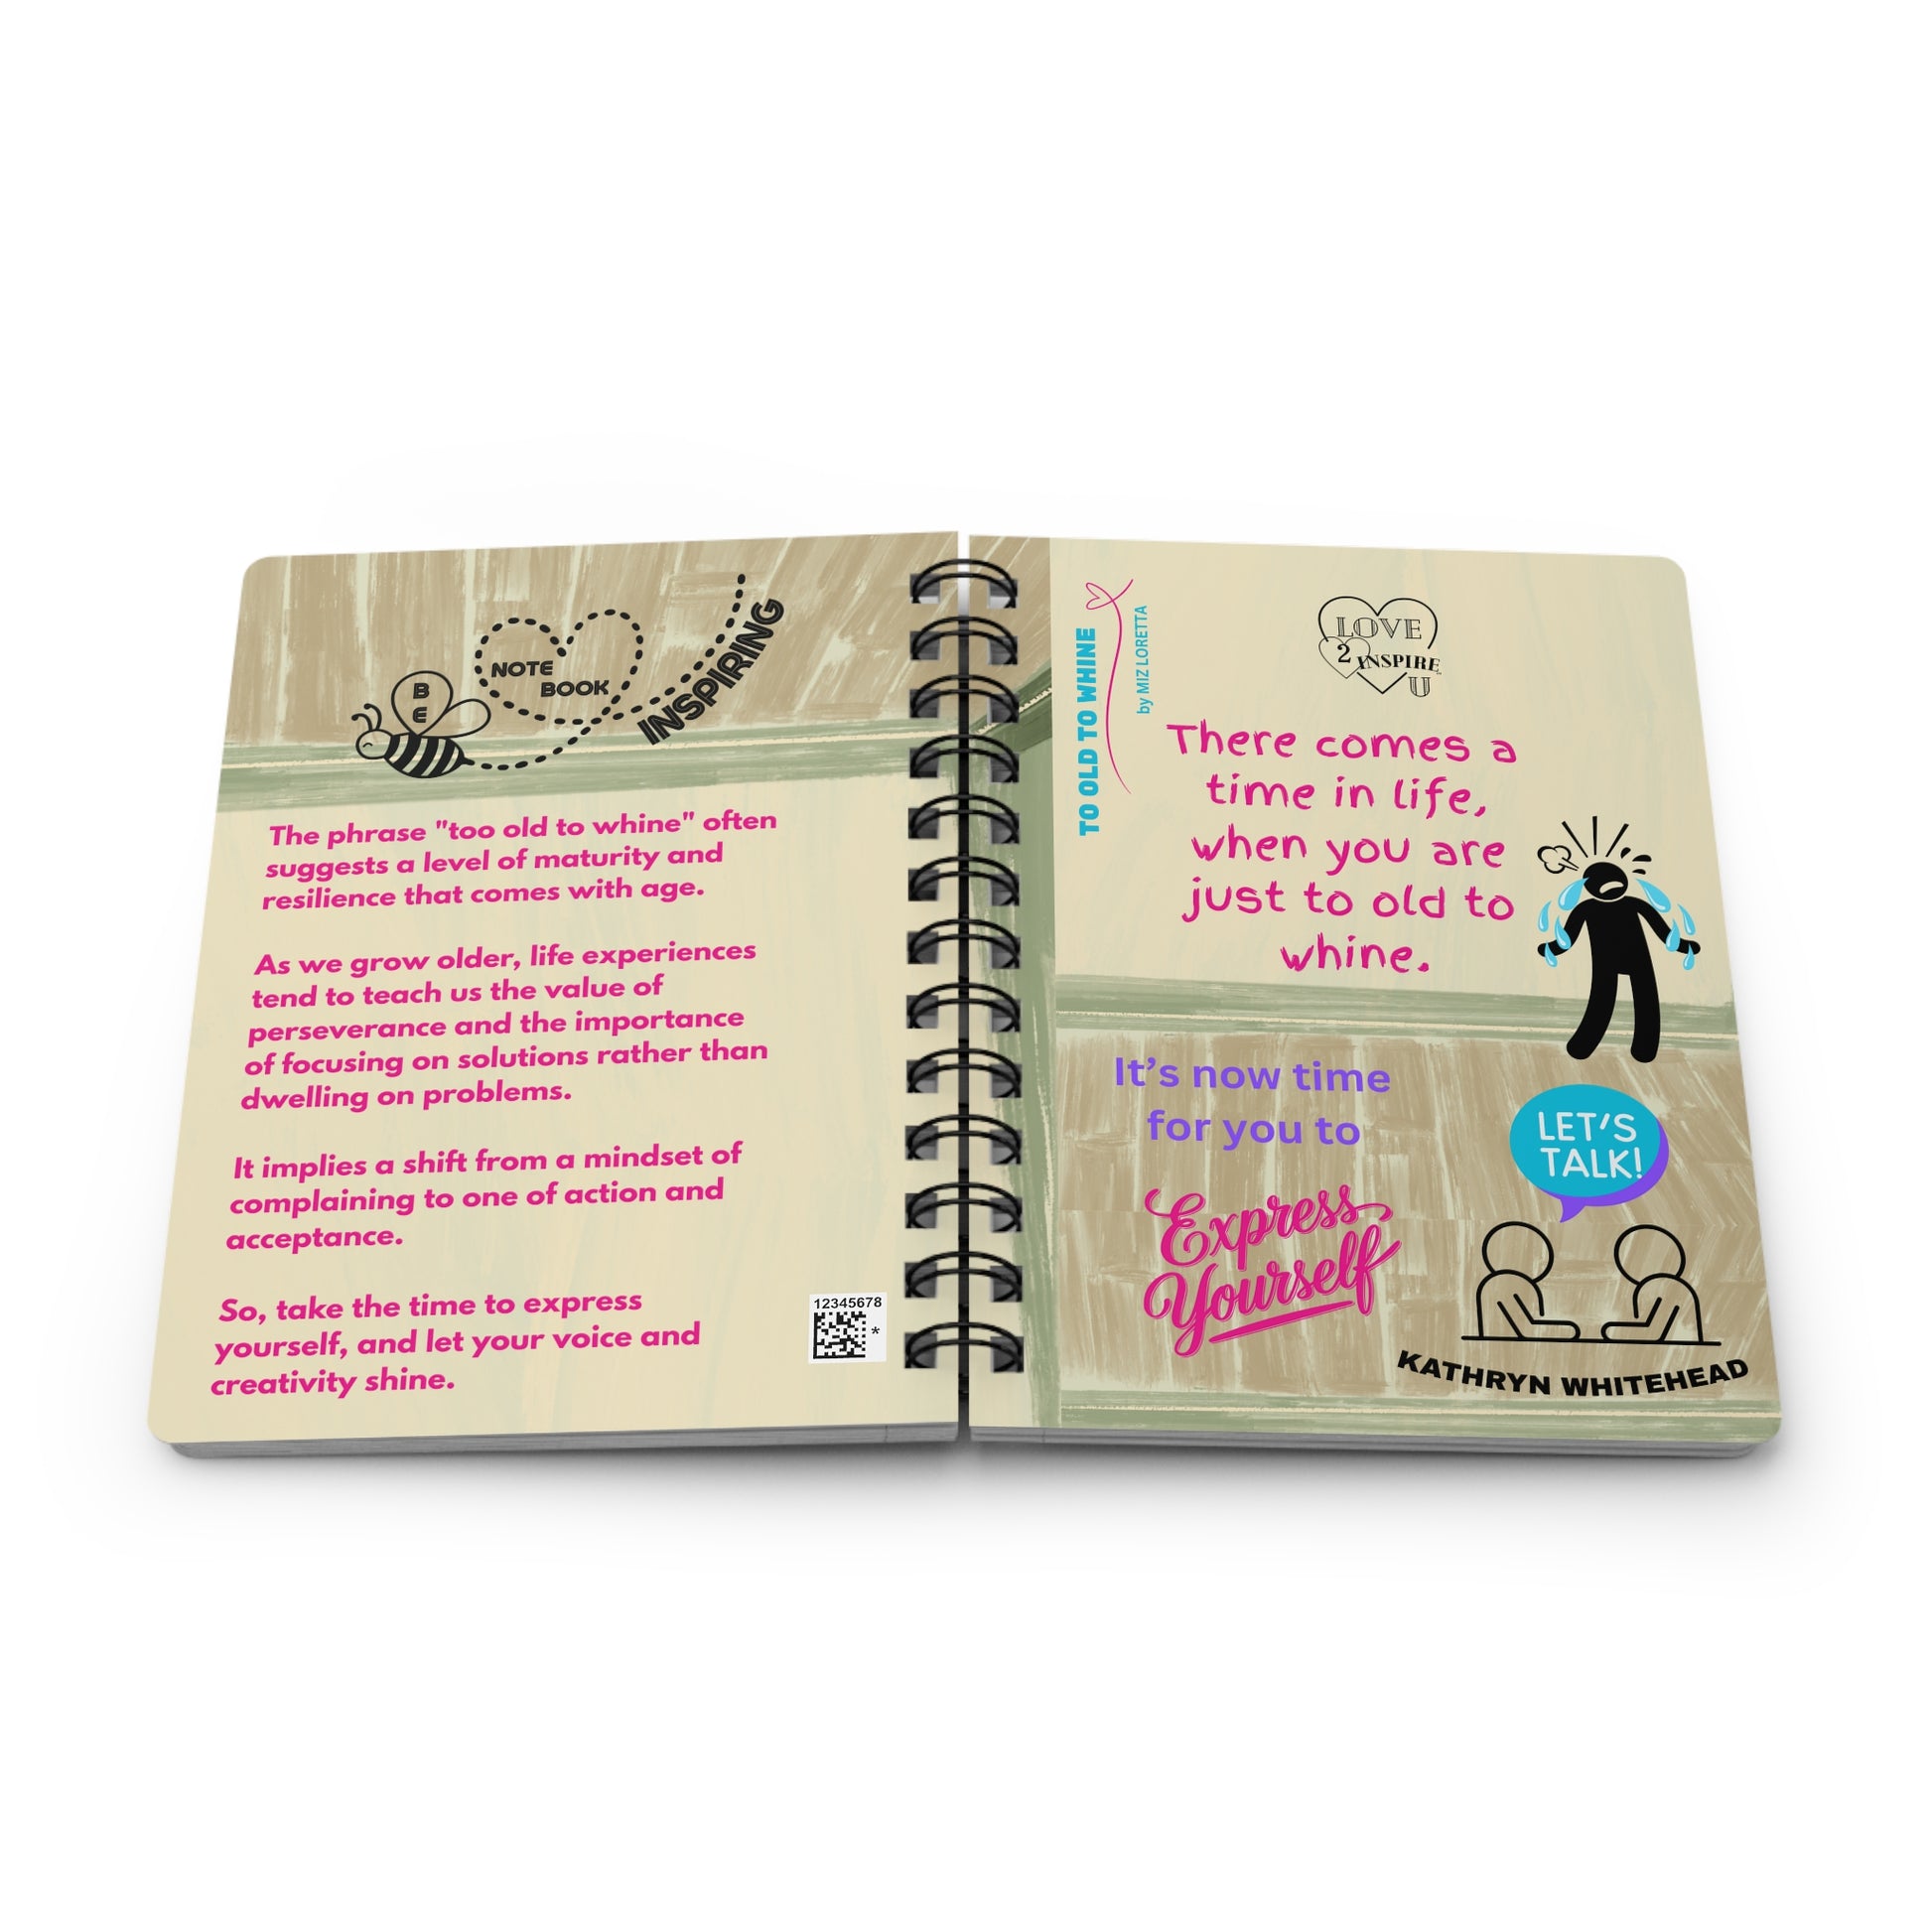 B
E
NOTE
BOOK
INSPIRING
The phrase "too old to whine" often
suggests a level of maturity and
resilience that comes with age.
As we grow older, life experiences
tend to teach us the value of
perseverance and the importance
of focusing on solutions rather than
dwelling on problems.
It implies a shift from a mindset of
complaining to one of action and
acceptance.
So, take the time to express
yourself, and let your voice and
creativity shine.
12345678
*
TO OLD TO WHINE
by MIZ LORETTA
LOVE
2 INSPIRE
U
There comes a
time in life,
when you are
just to old to
whine.
It's now time
for you to
Express
Yourself
LET'S
TALK!
KATHRYN WHITEHEAD